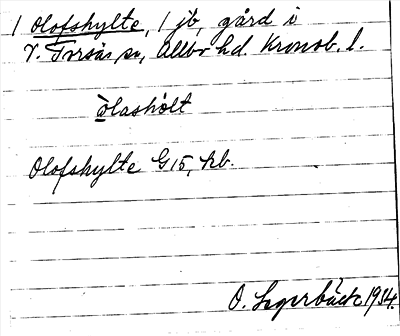 1 Olofshylte, 1 jb, gård i
V. Torsås sn, Allbo hd. Kronob. l.
òlashòlt
Olofshylte G 15, kb.
O. Lagerbäck 1934.